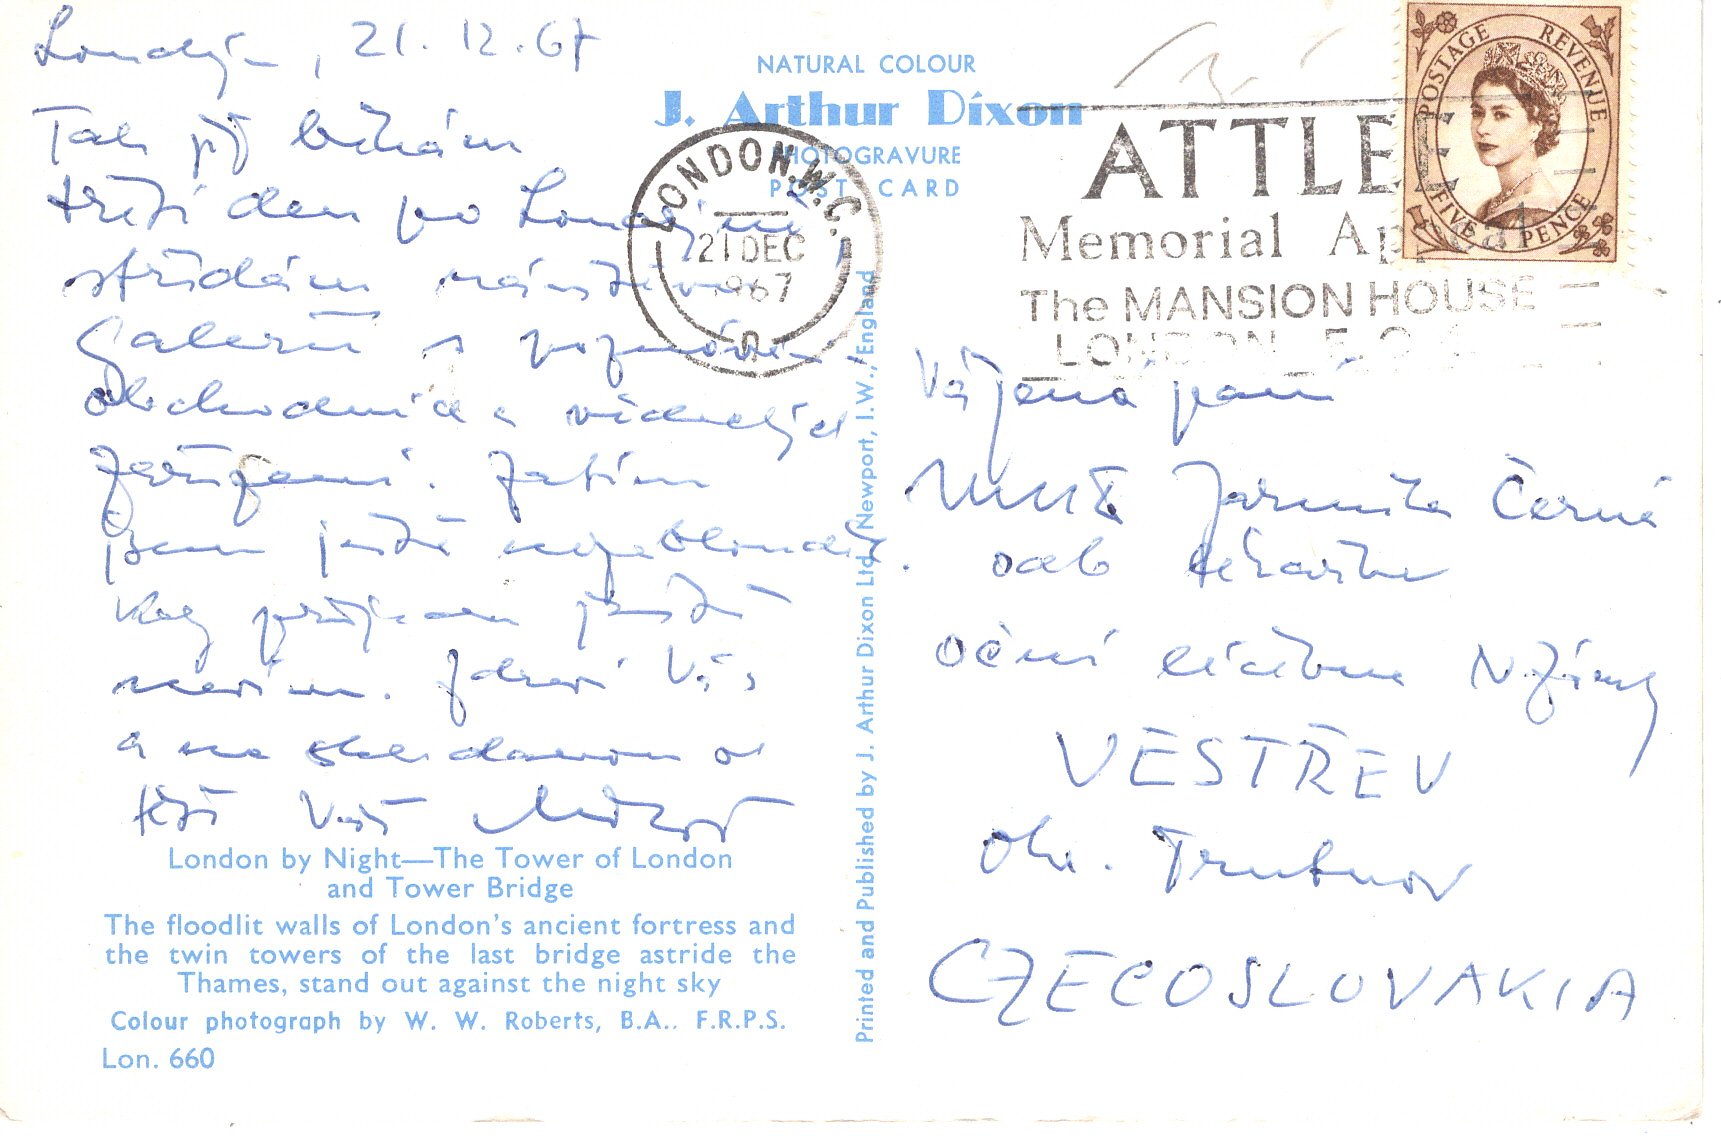 Londýn, 21.12.67
Tak již běhám
třetí den po Londýně
střídám návštěvu
Galerií s
obchodních a
zařízení. Zatím
jsem ještě nezabloudil.
Kdy ještě
nevím. Zdraví Vás
a na shledanou se
těší Váš
NATURAL COLOUR
J. Arthur Dixon
PHOTOGRAVURE
POST CARD
LONDON.W.C.
21 DEC
1967
ATTLEE
Memorial Appeal
The MANSION HOUSE
LONDON E.C.4
POSTAGE REVENUE
FIVE PENCE
Vážená paní
MUDr Jarmila Černá
odb lékařka
oční léčebna N.Zámky
VESTŘEV
Okr. Trutnov
CZECOSLOVAKIA
Printed and Published by J. Arthur Dixon Ltd., Newport, I.W., England
London by Night—The Tower of London
and Tower Bridge
The floodlit walls of London's ancient fortress and
the twin towers of the last bridge astride the
Thames, stand out against the night sky
Colour photograph by W. W. Roberts, B.A.. F.R.P.S.
Lon. 660